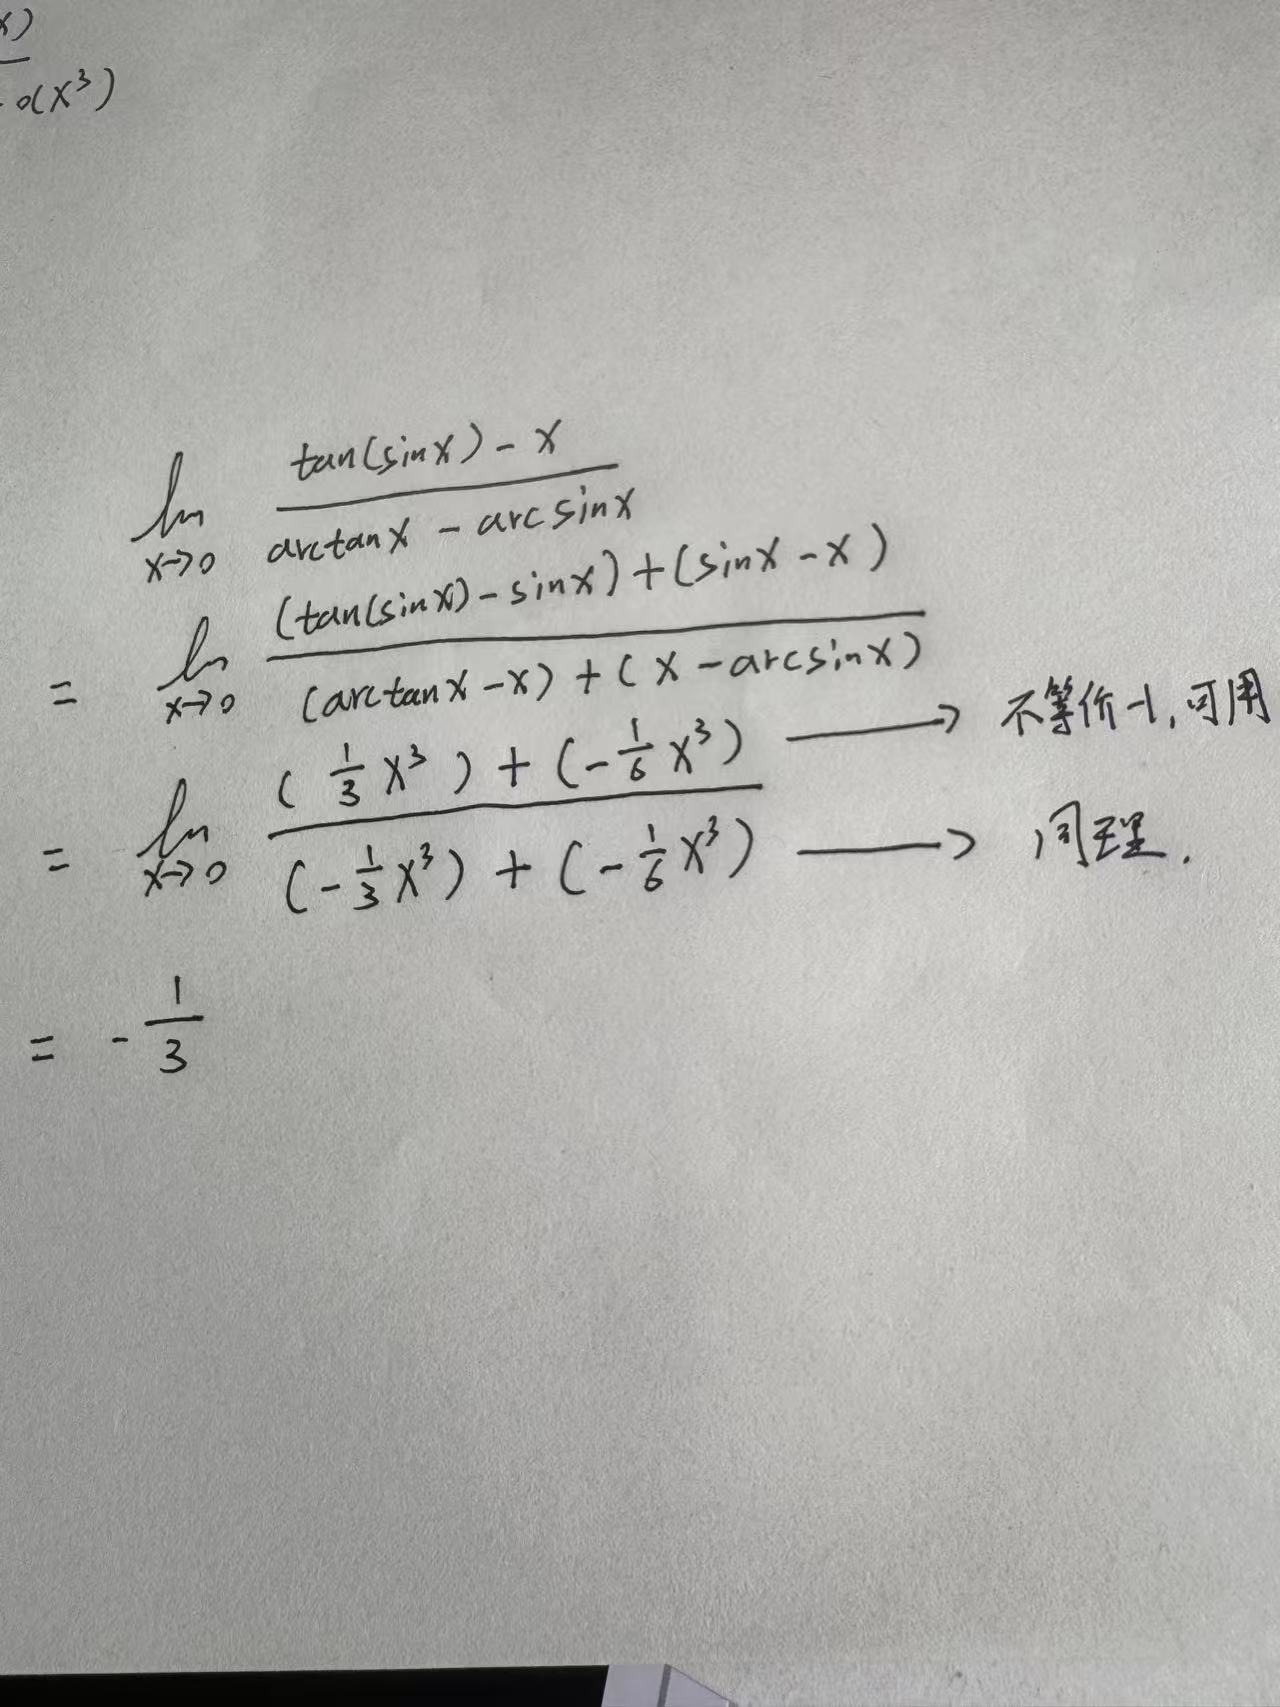 x)
- o(x³)
lim x→0 (tan(sinx) - x) / (arctanx - arcsinx)
= lim x→0 ((tan(sinx) - sinx) + (sinx - x)) / ((arctanx - x) + (x - arcsinx))
= lim x→0 ((1/3 x³) + (-1/6 x³)) / ((-1/3 x³) + (-1/6 x³))
→ 不等价-1,可用
→ 同理.
= -1/3